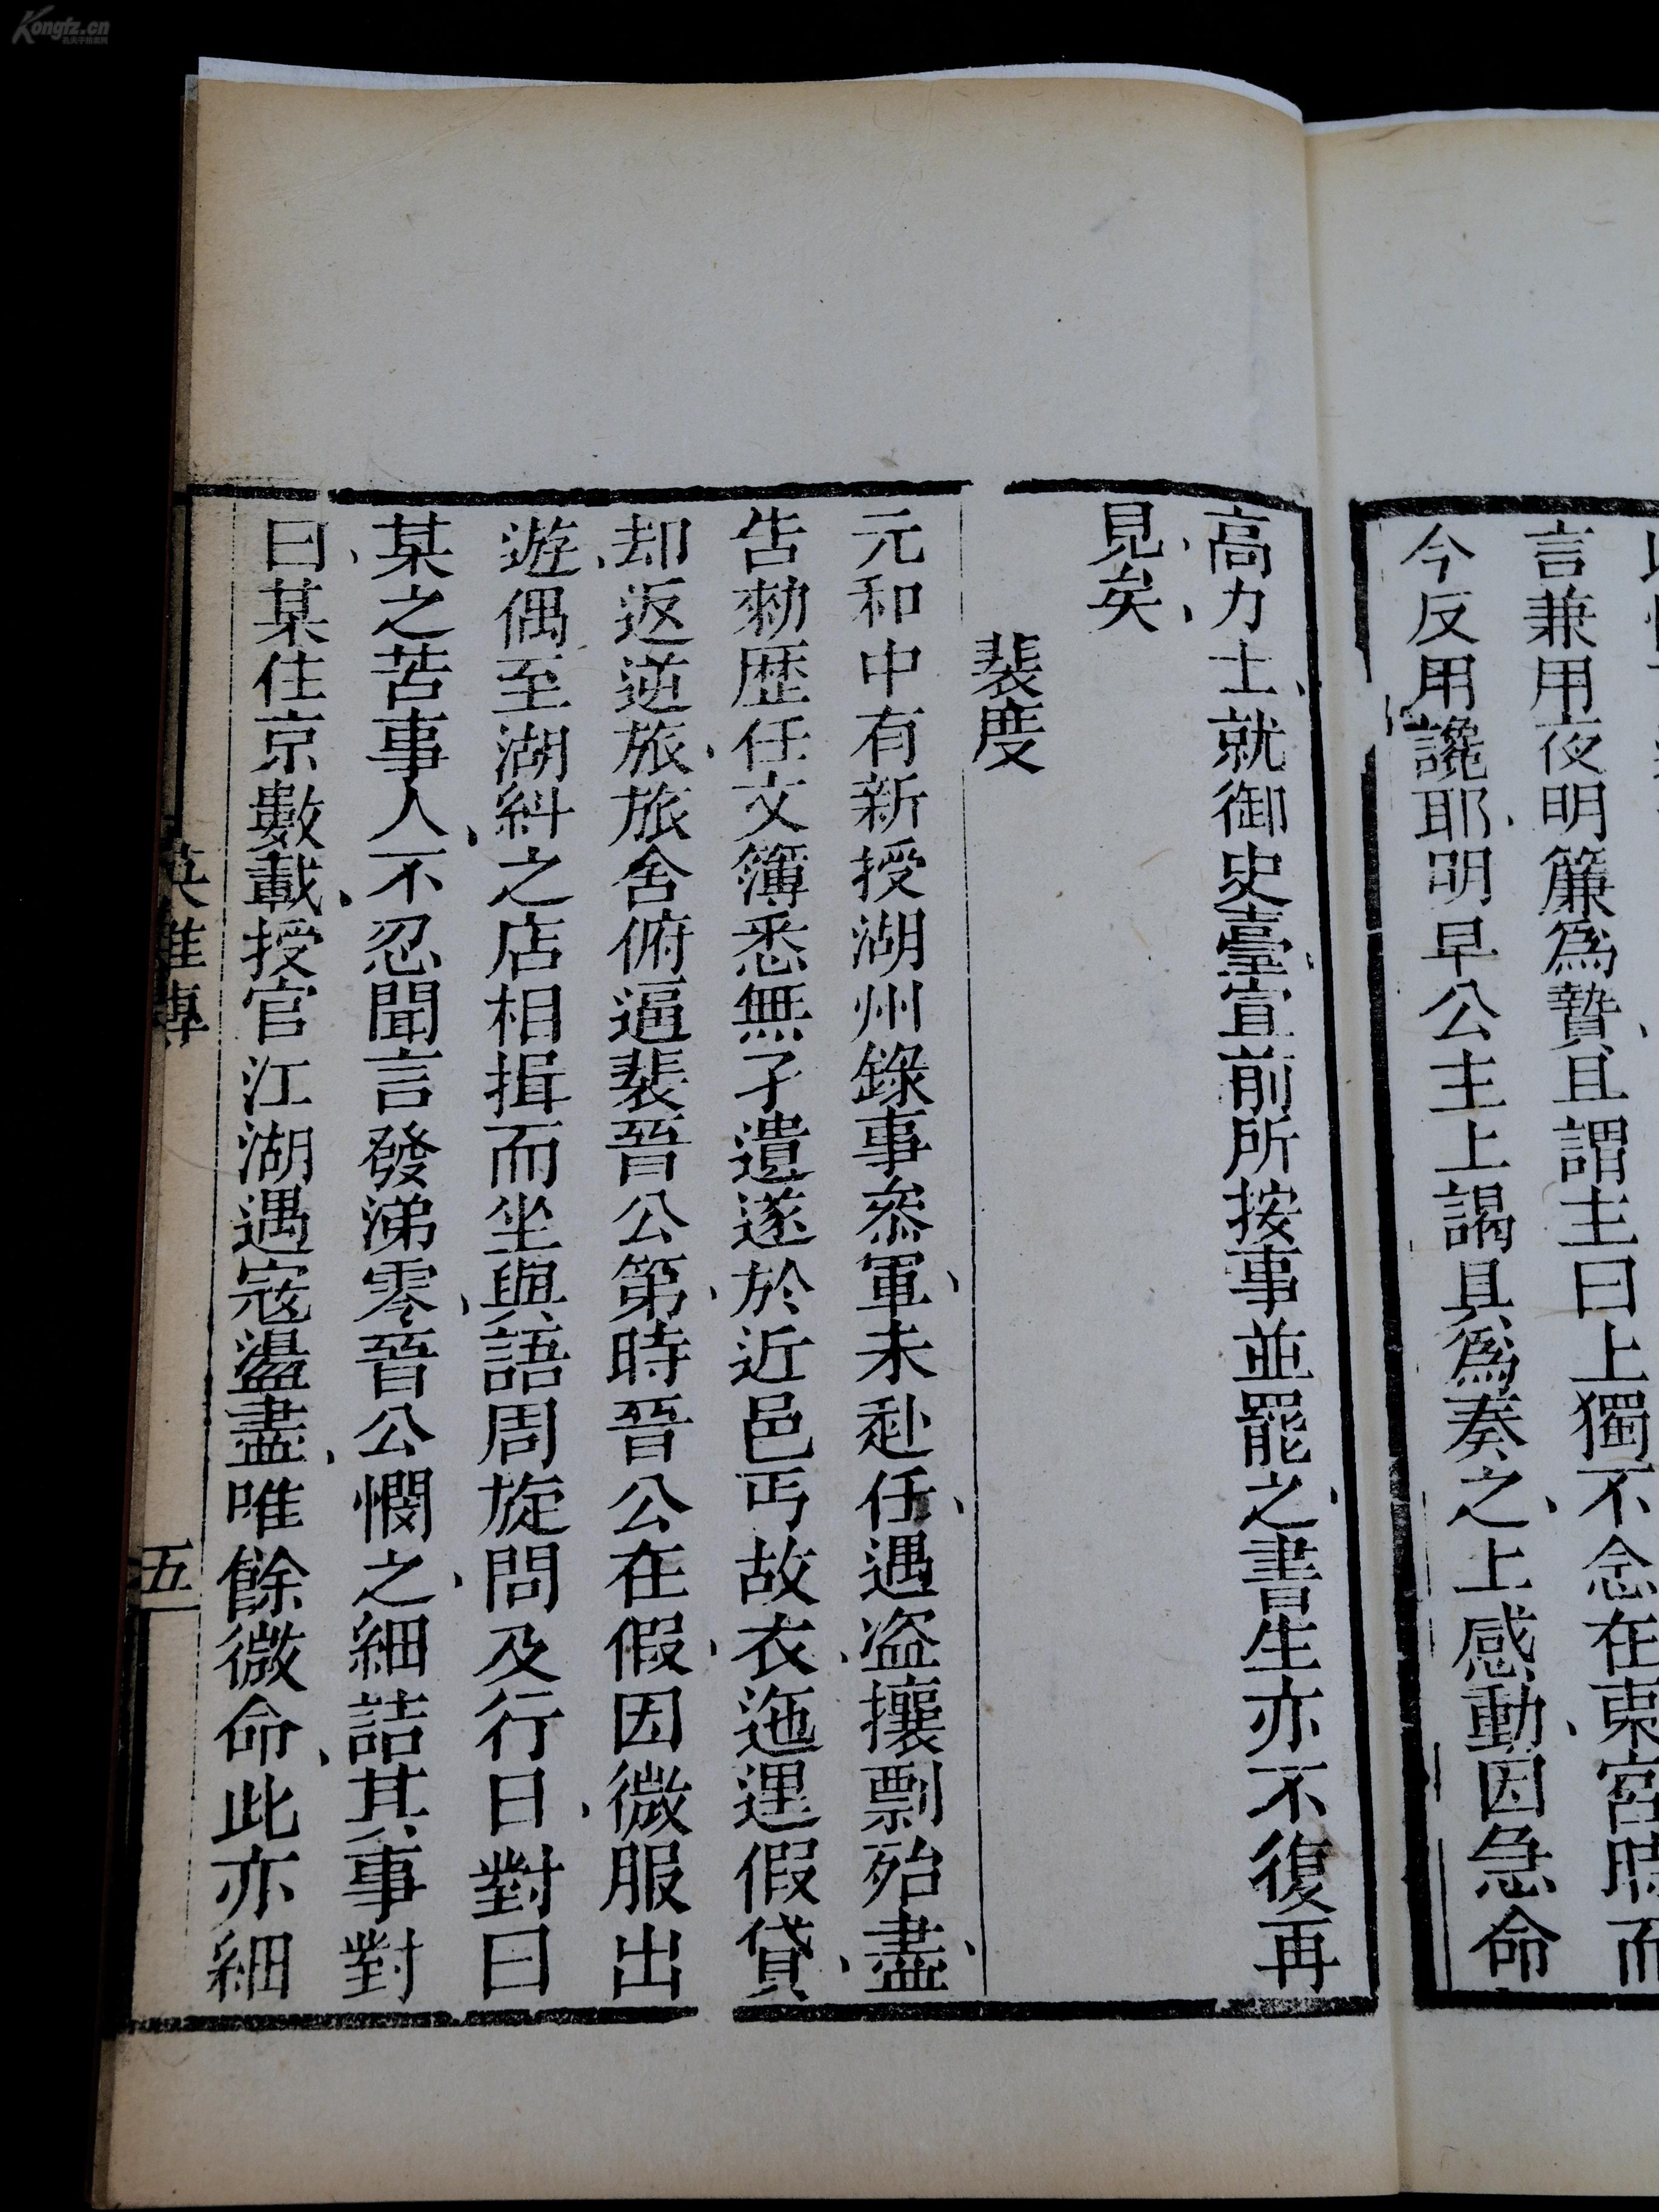 言兼用夜明簾為贄且謂主曰上獨不念在東宮時而
今反用讒耶明早公主上謁具為奏之上感動因急命
高力士就御史臺宣前所按事並罷之書生亦不復再
見矣
裴度
元和中有新授湖州錄事叅軍未赴任遇盗攘剽殆盡
告勑歴任文簿悉無孑遺遂於近邑丐故衣迤逦假貸
却返逆旅旅舍俯逼裴晉公第時晉公在假因微服出
遊偶至湖糾之店相揖而坐與語周旋問及行日對曰
某之苦事人不忍聞言發涕零晉公憫之細詰其事對
曰某住京數載授官江湖遇寇盪盡唯餘微命此亦細
英雄傳
五
Kongfz.cn